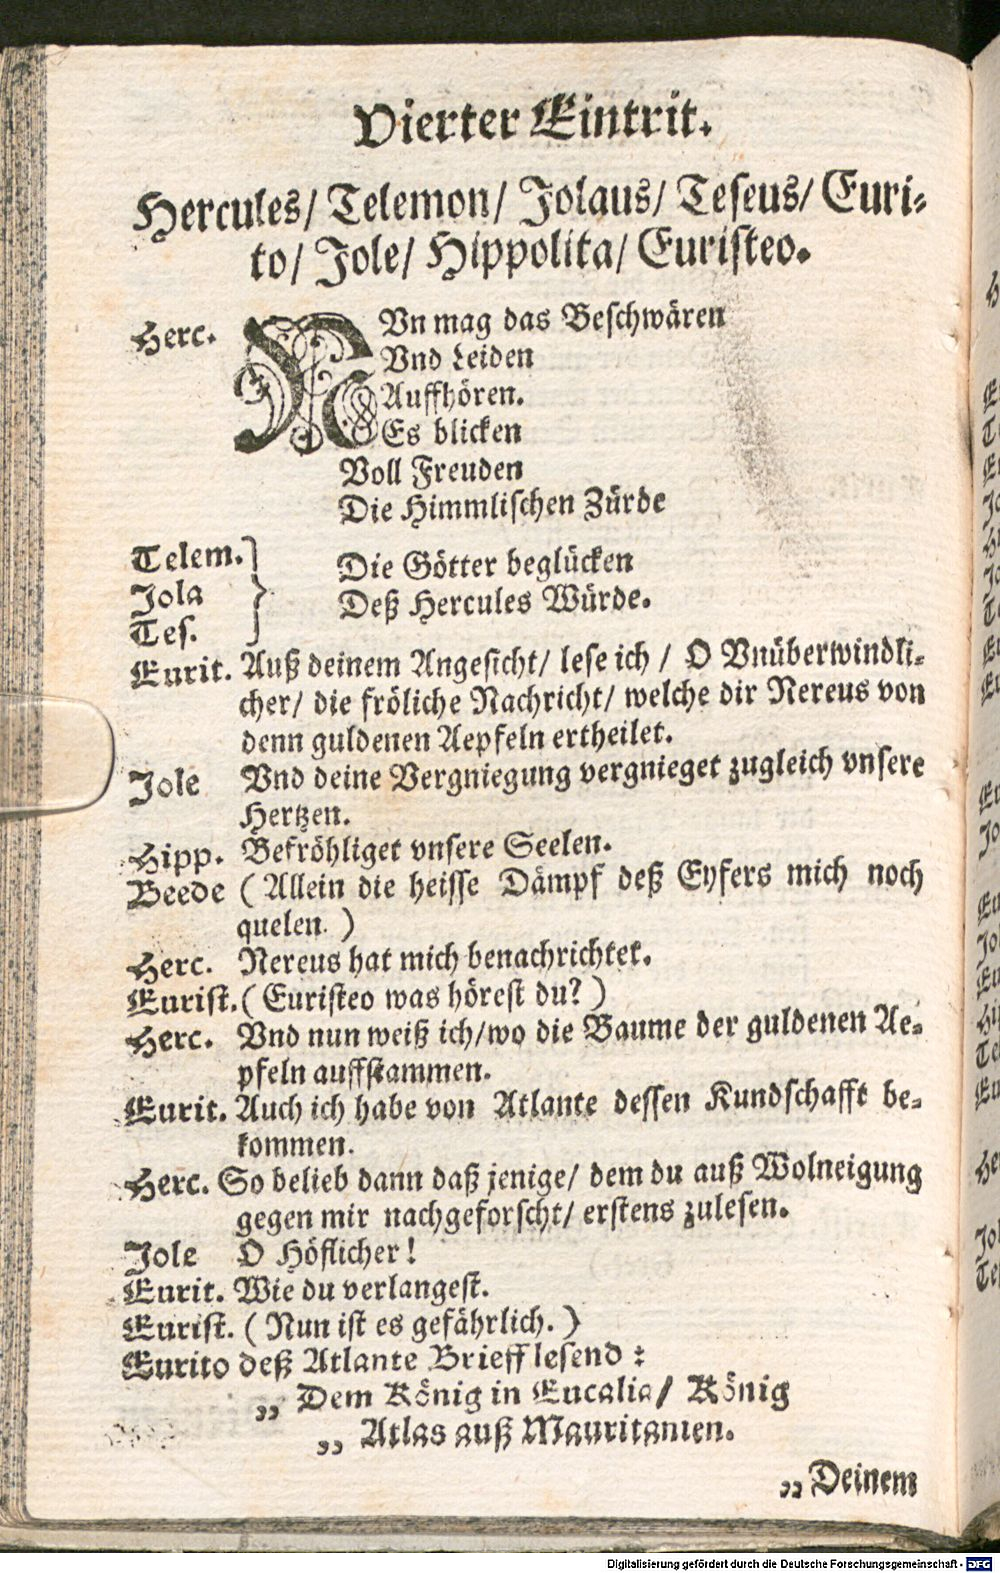 Vierter Eintrit.
Hercules/ Telemon/ Jolaus/ Teseus/ Euri-
to/ Jole/ Hippolita/ Euristeo.
Herc. NVn mag das Beschwären
Vnd Leiden
Auffhören.
Es blicken
Voll Freuden
Die Himmlischen Zürde
Telem.
Jola
Tes.
Die Götter beglücken
Deß Hercules Würde.
Eurit. Auß deinem Angesicht/ lese ich / O Vnüberwindli-
cher/ die fröliche Nachricht/ welche dir Nereus von
denn guldenen Aepfeln ertheilet.
Jole Vnd deine Vergniegung vergnieget zugleich vnsere
Hertzen.
Hipp. Befröhliget vnsere Seelen.
Beede ( Allein die heisse Dämpf deß Eyfers mich noch
quelen. )
Herc. Nereus hat mich benachrichtet.
Eurist. ( Euristeo was hörest du? )
Herc. Vnd nun weiß ich/wo die Baume der guldenen Ae-
pfeln auffstammen.
Eurit. Auch ich habe von Atlante dessen Kundschafft be-
kommen.
Herc. So belieb dann daß jenige/ dem du auß Wolneigung
gegen mir nachgeforscht/ erstens zulesen.
Jole O Höflicher!
Eurit. Wie du verlangest.
Eurist. ( Nun ist es gefährlich. )
Eurito deß Atlante Brieff lesend :
„ Dem König in Eucalia/ König
„ Atlas auß Mauritanien.
„ Deinem
Digitalisierung gefördert durch die Deutsche Forschungsgemeinschaft - DFG